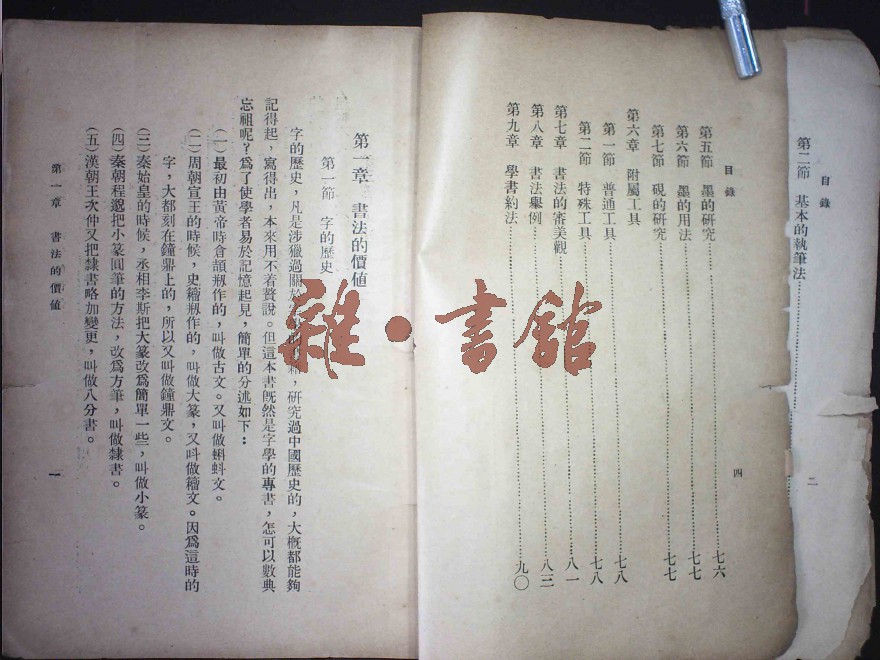 目錄
二
第二節 基本的執筆法
目錄
四
第五節 墨的研究……七六
第六節 墨的用法……七七
第七節 硯的研究……七七
第六章 附屬工具
第一節 普通工具……七八
第二節 特殊工具……七八
第七章 書法的審美觀……八一
第八章 書法舉例……八三
第九章 學書約法……九〇
第一章 書法的價値
第一節 字的歷史
字的歷史，凡是涉獵過關於，研究過中國歷史的，大概都能夠
記得起，寫得出，本來用不着贅說。但這本書旣然是字學的專書，怎可以數典
忘祖呢？爲了使學者易於記憶起見，簡單的分述如下：
（一）最初由黃帝時倉頡剏作的，叫做古文。又叫做蝌蚪文。
（二）周朝宣王的時候，史籀剏作的，叫做大篆，又叫做籀文。因爲這時的
字，大都刻在鐘鼎上的，所以又叫做鐘鼎文。
（三）秦始皇的時候，丞相李斯把大篆改爲簡單一些，叫做小篆。
（四）秦朝程邈把小篆圓筆的方法，改爲方筆，叫做隸書。
（五）漢朝王次仲又把隸書略加變更，叫做八分書。
第一章 書法的價値
一
雜·書館